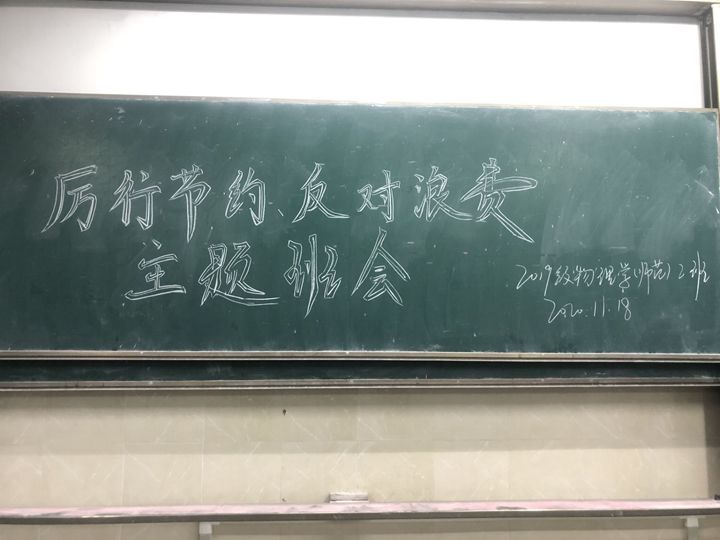 厉行节约、反对浪费
主题班会
2019级物理学(师范)2班
2020.11.18